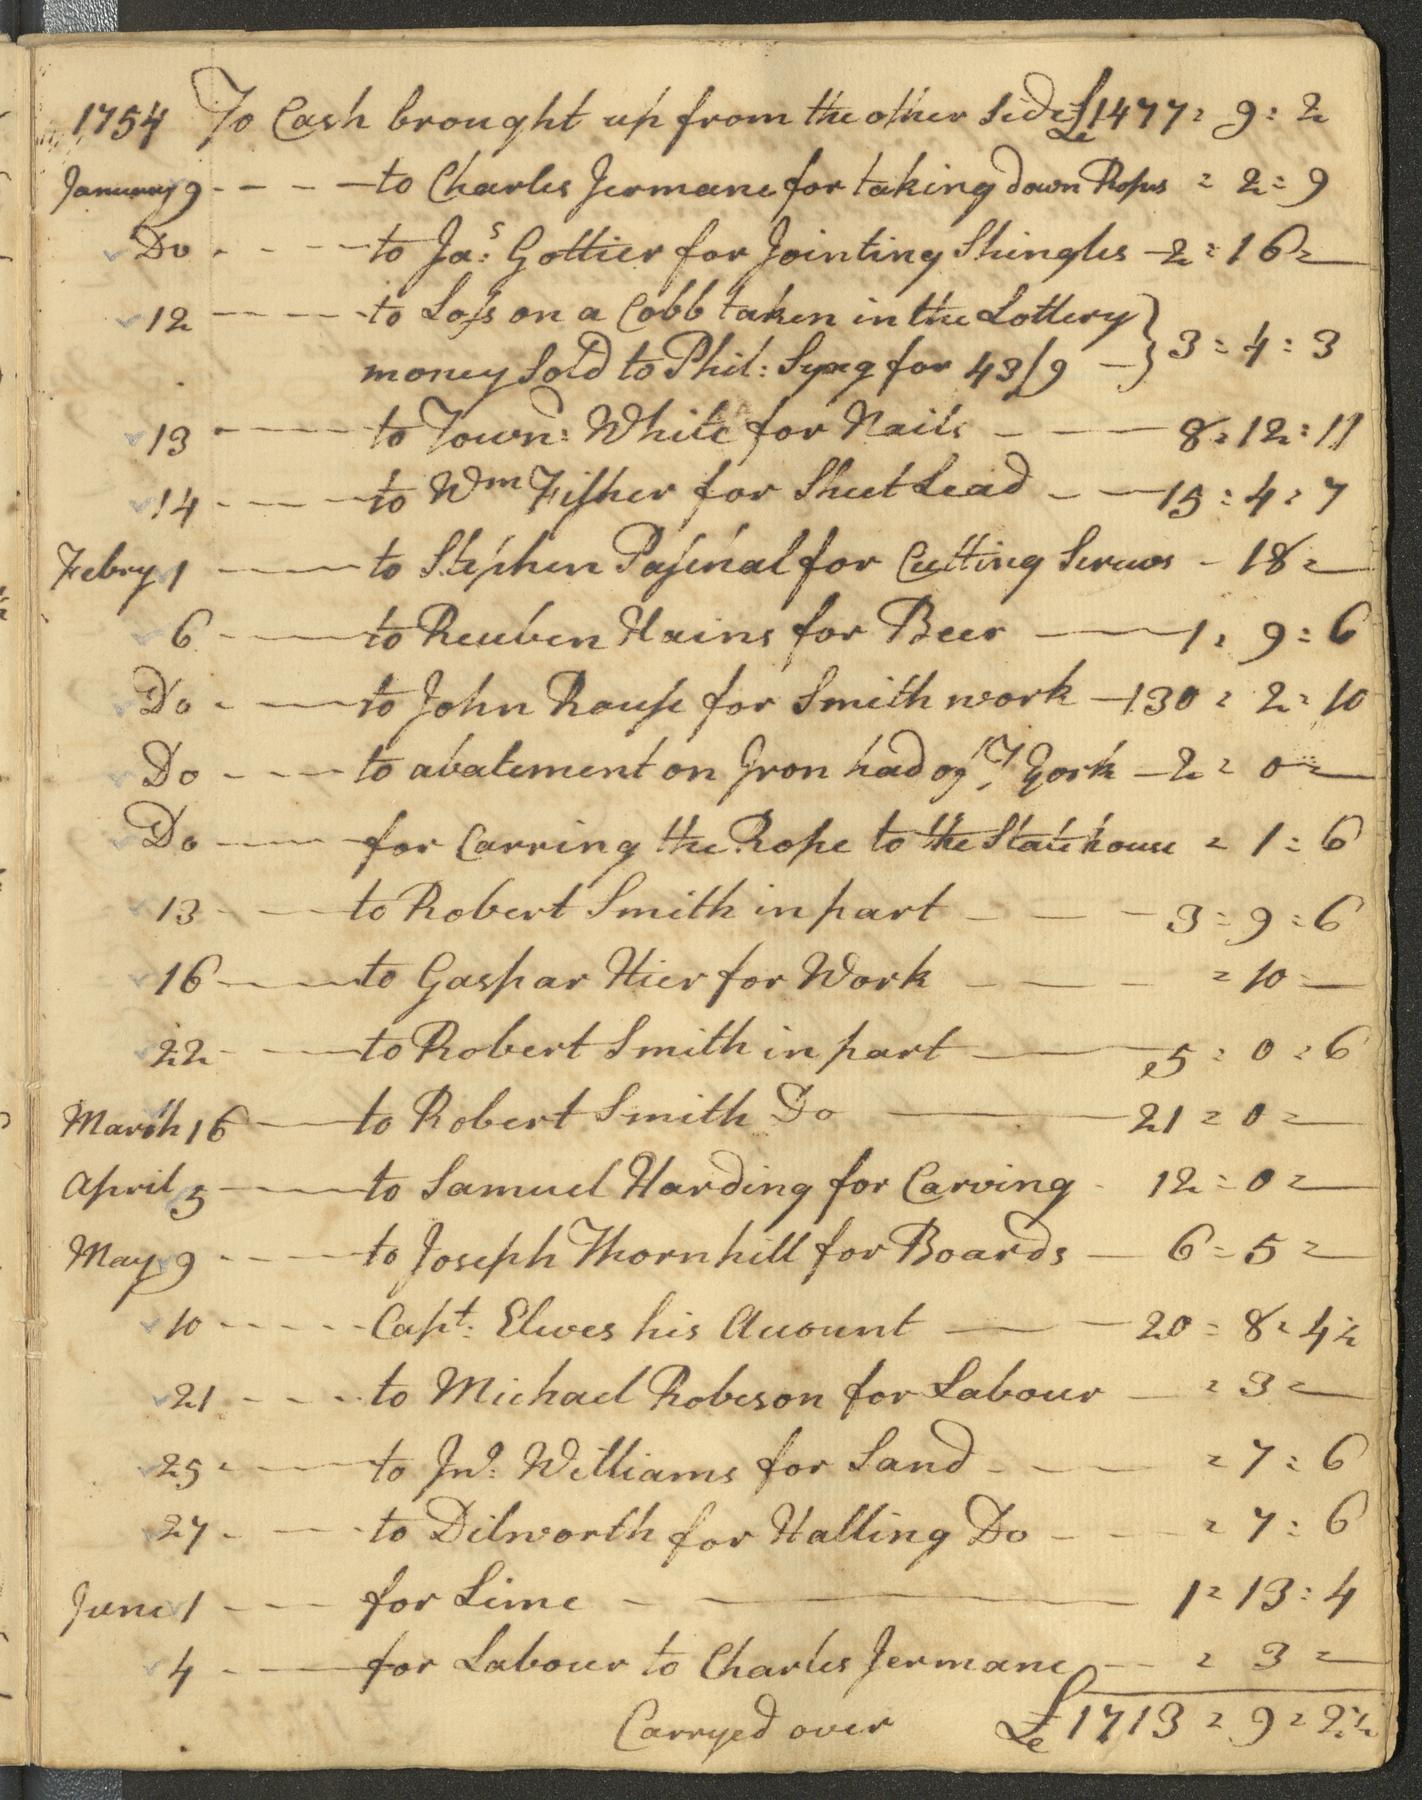 1754 To Cash brought up from the other Side £1477 = 9 = 2
January 9 - - - - to Charles Jermane for taking down Ropes = 2 = 9
Do - - - - to Jas: Gottier for Jointing Shingles - 2 = 16 =
12 - - - - to Loss on a Cobb taken in the Lottery
money Sold to Phil: Syng for 43/9 - } 3 = 4 = 3
13 - - - - to Town: White for Nails - - - 8 = 12 = 11
14 - - - - to Wm Fisher for Sheet Lead - - 15 = 4 = 7
Febry 1 - - - to Stephen Pasenal for Cutting Screws - 18 =
6 - - - to Reuben Hains for Beer - - 1 = 9 = 6
Do - - - to John Rouse for Smith work - 130 = 2 = 10
Do - - - to abatement on Iron had of T. York - 2 = 0 =
Do - - - for Carring the Rope to the Statehouse = 1 = 6
13 - - - to Robert Smith in part - - - 3 = 9 = 6
16 - - - to Gaspar Hier for Work - - - = 10 =
22 - - - to Robert Smith in part - - 5 = 0 = 6
March 16 - - to Robert Smith Do - 21 = 0 =
April 5 - - to Samuel Harding for Carving - 12 = 0 =
May 9 - - - to Joseph Thornhill for Boards - 6 = 5 =
10 - - - - Capt: Elwes his Account - - 20 = 8 = 4½
21 - - - to Michael Robeson for Labour - = 3 =
25 - - - to Jno: Williams for Sand - - - = 7 = 6
27 - - - to Dilworth for Halling Do - - - = 7 = 6
June 1 - - - for Lime - - 1 = 13 = 4
4 - - - for Labour to Charles Jermane - = 3 =
Carryed over £1713 = 9 = 2½